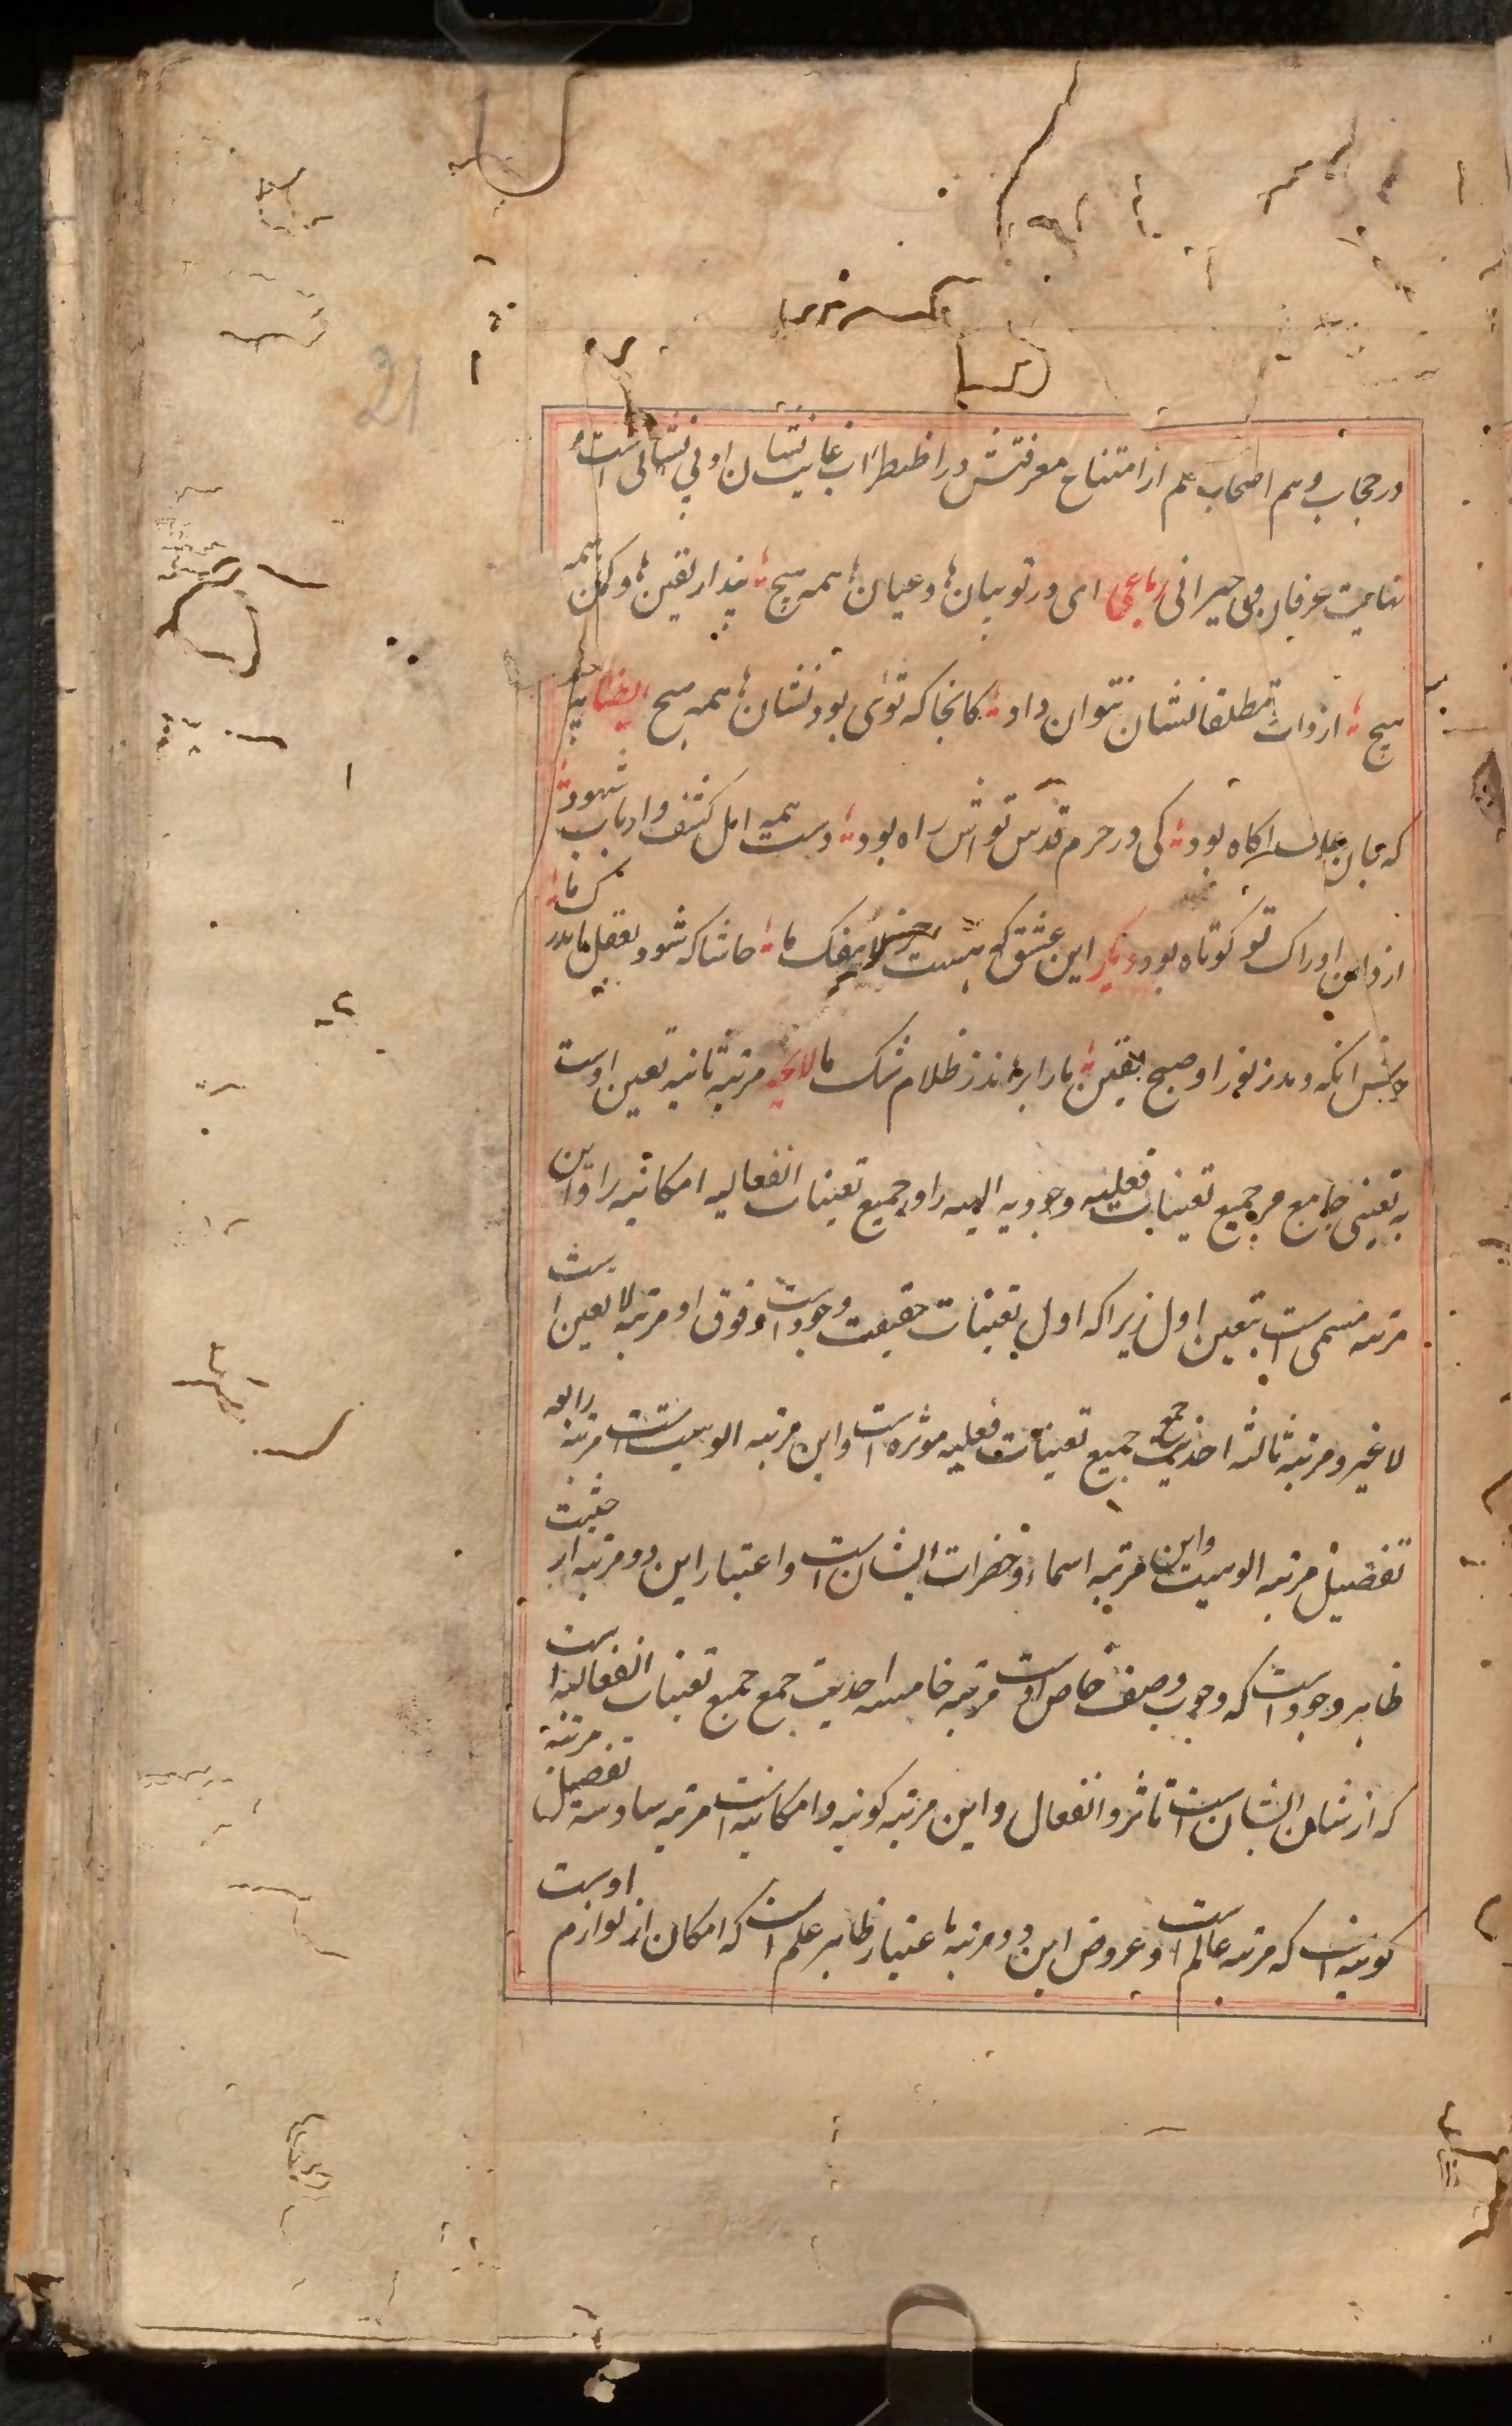 21
در حجاب و هم اصحاب علم از امتناح معرفتش در اظطراب غایت نشان او بی نشانی است
نهایت عرفان وی حیرانی رباعی ای در تو بیان‌ها و عیان‌ها همه هیچ پندار یقین‌ها و گمان همه
هیچ از ذات تو مطلقا نشان نتوان داد کانجا که توئی بود نشان‌ها همه هیچ ایضا
که جان علان اکاه بود کی در حرم قدس تو اش راه بود دست همه اهل کشف و ارباب شهود
از دامن ادراک تو کوتاه بود دیگر این عشق که هست جز لاینفک ما حاشا که شود بعقل ما مدرک ما
خوش آنکه دمد ز نور او صبح یقین ما را برهاند ز ظلام شک ما لایحه مرتبه ثانیه تعین اوست
به تعینی جامع مر جمیع تعینات فعلیه وجوبیه الهیه را و جمیع تعینات انفعالیه امکانیه را و این
مرتبه مسمی است بتعین اول زیرا که اول تعینات حقیقت وجود است و فوق او مرتبه لا تعین است
لا غیر و مرتبه ثالثه احدیت جمع جمیع تعینات فعلیه موثره است و این مرتبه الوهیت است مرتبه رابعه
تفصیل مرتبه الوهیت و این مرتبه اسماء و حضرات ایشان است و اعتبار این دو مرتبه از حیثیت
ظاهر وجود است که وجوب وصف خاص اوست مرتبه خامسه احدیت جمع جمیع تعینات انفعالیه است
که از شان ایشان است تاثر و انفعال و این مرتبه کونیه و امکانیه است مرتبه سادسه تفصیل مرتبه
کونیه است که مرتبه عالم است و عروض این دو مرتبه باعتبار ظاهر علم است که امکان از لوازم اوست